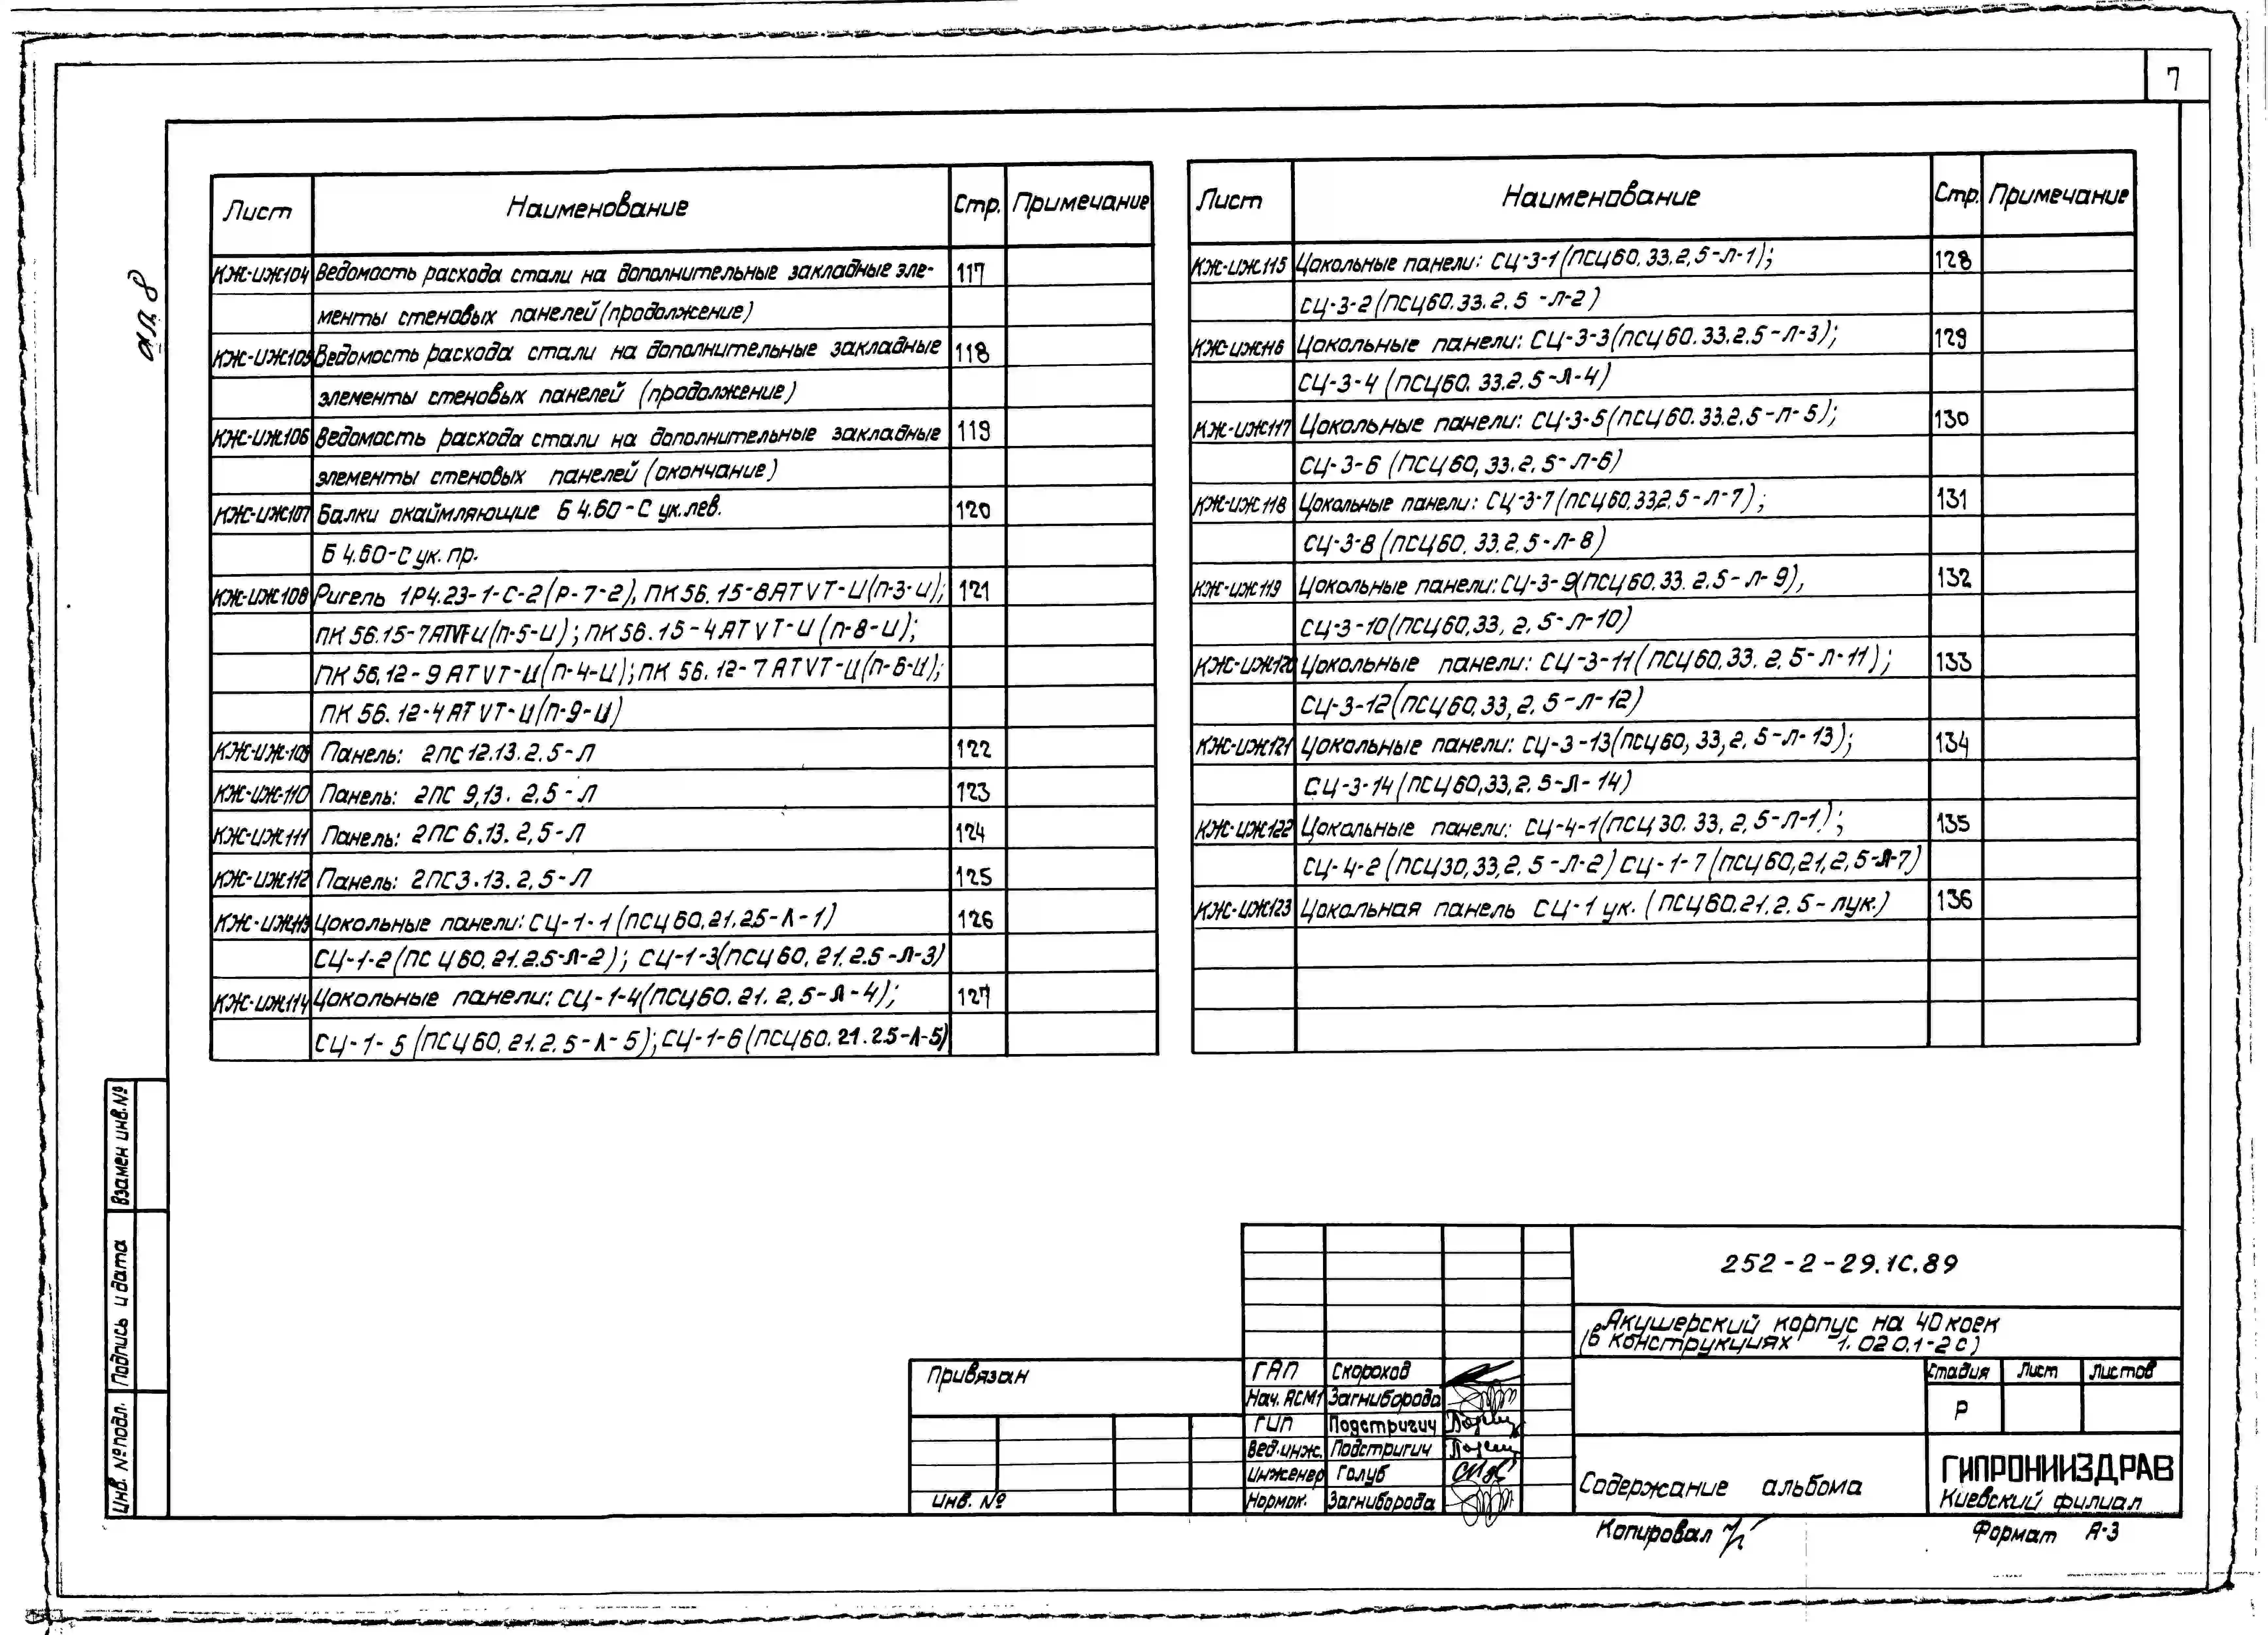 7
ал. 8
Лист Наименование Стр. Примечание
КЖ-ИЖ104 Ведомость расхода стали на дополнительные закладные эле- 117
менты стеновых панелей (продолжение)
КЖ-ИЖ105 Ведомость расхода стали на дополнительные закладные 118
элементы стеновых панелей (продолжение)
КЖ-ИЖ106 Ведомость расхода стали на дополнительные закладные 119
элементы стеновых панелей (окончание)
КЖ-ИЖ107 Балки окаймляющие Б 4.60-С ук.лев. 120
Б 4.60-С ук. пр.
КЖ-ИЖ108 Ригель 1Р4.23-1-С-2(Р-7-2), ПК56.15-8АТVТ-И(п-3-и); 121
ПК 56.15-7АТVТ-И(п-5-и); ПК56.15-4АТVТ-И(п-8-и);
ПК 56.12-9АТVТ-И(п-4-и); ПК 56.12-7АТVТ-И(п-6-и);
ПК 56.12-4АТVТ-И(п-9-и)
КЖ-ИЖ-109 Панель: 2ПС 12.13.2.5-Л 122
КЖ-ИЖ-110 Панель: 2ПС 9,13. 2,5-Л 123
КЖ-ИЖ111 Панель: 2ПС 6.13. 2,5-Л 124
КЖ-ИЖ112 Панель: 2ПС3.13.2,5-Л 125
КЖ-ИЖ113 Цокольные панели: СЦ-1-1(ПСЦ60.21.2.5-Л-1) 126
СЦ-1-2(ПСЦ60.21.2.5-Л-2); СЦ-1-3(ПСЦ60.21.2.5-Л-3)
КЖ-ИЖ114 Цокольные панели: СЦ-1-4(ПСЦ60.21.2,5-Л-4); 127
СЦ-1-5(ПСЦ60.21.2.5-Л-5); СЦ-1-6(ПСЦ60.21.2.5-Л-5)
Лист Наименование Стр. Примечание
КЖ-ИЖ115 Цокольные панели: СЦ-3-1(ПСЦ60.33.2,5-Л-1); 128
СЦ-3-2(ПСЦ60.33.2.5-Л-2)
КЖ-ИЖ116 Цокольные панели: СЦ-3-3(ПСЦ60.33.2.5-Л-3); 129
СЦ-3-4(ПСЦ60.33.2.5-Л-4)
КЖ-ИЖ117 Цокольные панели: СЦ-3-5(ПСЦ60.33.2.5-Л-5); 130
СЦ-3-6(ПСЦ60,33.2.5-Л-6)
КЖ-ИЖ118 Цокольные панели: СЦ-3-7(ПСЦ60.33.2.5-Л-7); 131
СЦ-3-8(ПСЦ60.33.2.5-Л-8)
КЖ-ИЖ119 Цокольные панели: СЦ-3-9(ПСЦ60.33.2.5-Л-9), 132
СЦ-3-10(ПСЦ60,33,2,5-Л-10)
КЖ-ИЖ120 Цокольные панели: СЦ-3-11(ПСЦ60,33.2,5-Л-11); 133
СЦ-3-12(ПСЦ60,33,2,5-Л-12)
КЖ-ИЖ121 Цокольные панели: СЦ-3-13(ПСЦ60,33,2,5-Л-13); 134
СЦ-3-14(ПСЦ60,33,2,5-Л-14)
КЖ-ИЖ122 Цокольные панели: СЦ-4-1(ПСЦ30.33,2,5-Л-1); 135
СЦ-4-2(ПСЦ30,33,2.5-Л-2) СЦ-1-7(ПСЦ60,21,2,5-Л-7)
КЖ-ИЖ123 Цокольная панель СЦ-1 ук. (ПСЦ60.21.2.5-Лук.) 136
Взамен инв.№
Подпись и дата
Инв. №подл.
252-2-29.1С.89
Акушерский корпус на 40 коек
(в конструкциях 1.020.1-2с)
Привязан
Инв. №
ГАП Скороход
Нач. АСМ1 Загниборода
ГИП Подстригич
Вед.инж. Подстригич
Инженер Голуб
Нормок. Загниборода
Стадия Лист Листов
Р
Содержание альбома
ГИПРОНИИЗДРАВ
Киевский филиал
Копировал
Формат А-3